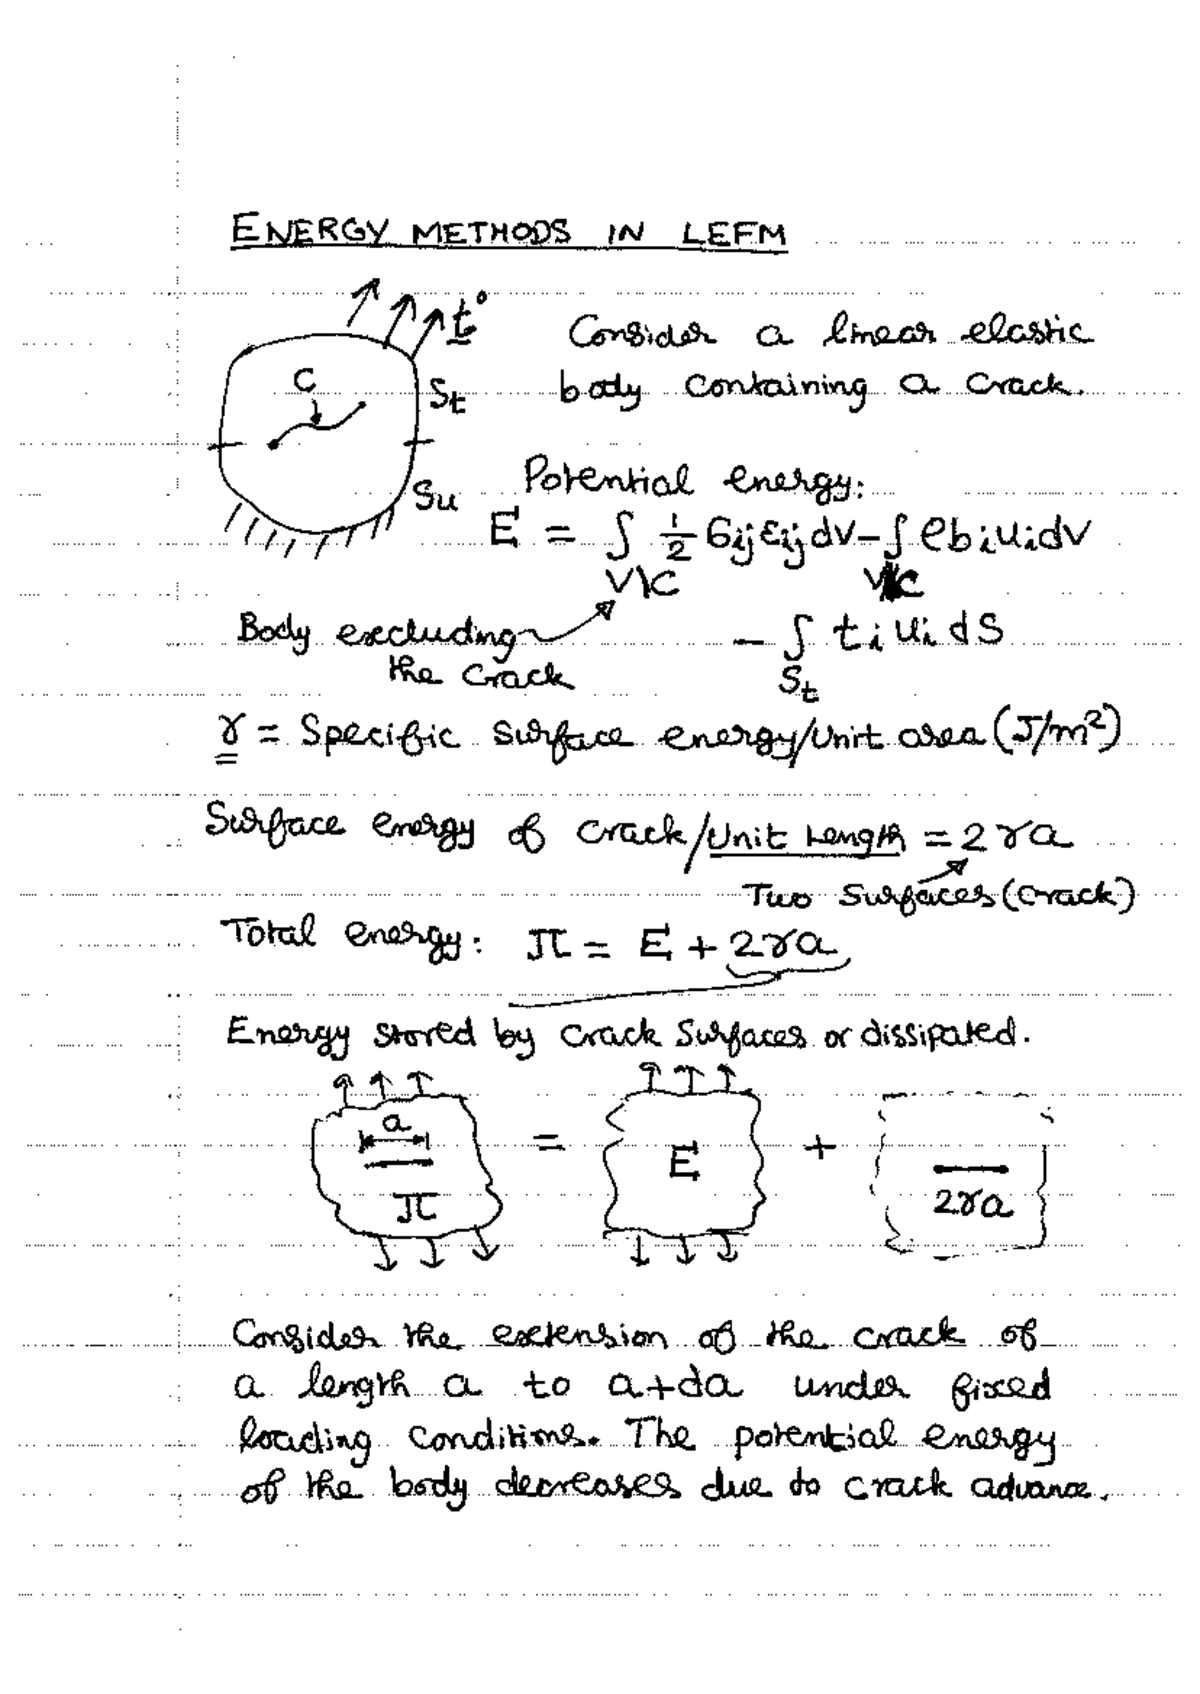 ENERGY METHODS IN LEFM
t°
Consider a linear elastic
C
St
body containing a crack.
Su
Potential energy:
E = ∫ 1/2 σij εij dV - ∫ ρ bi ui dV
V\C V\C
Body excluding
the crack
- ∫ ti ui dS
St
γ = Specific surface energy/Unit area (J/m²)
Surface energy of crack/Unit Length = 2γa
Two Surfaces (Crack)
Total energy: Π = E + 2γa
Energy stored by crack surfaces or dissipated.
a
Π = E + 2γa
Consider the extension of the crack of
a length a to a+da under fixed
loading conditions. The potential energy
of the body decreases due to crack advance.